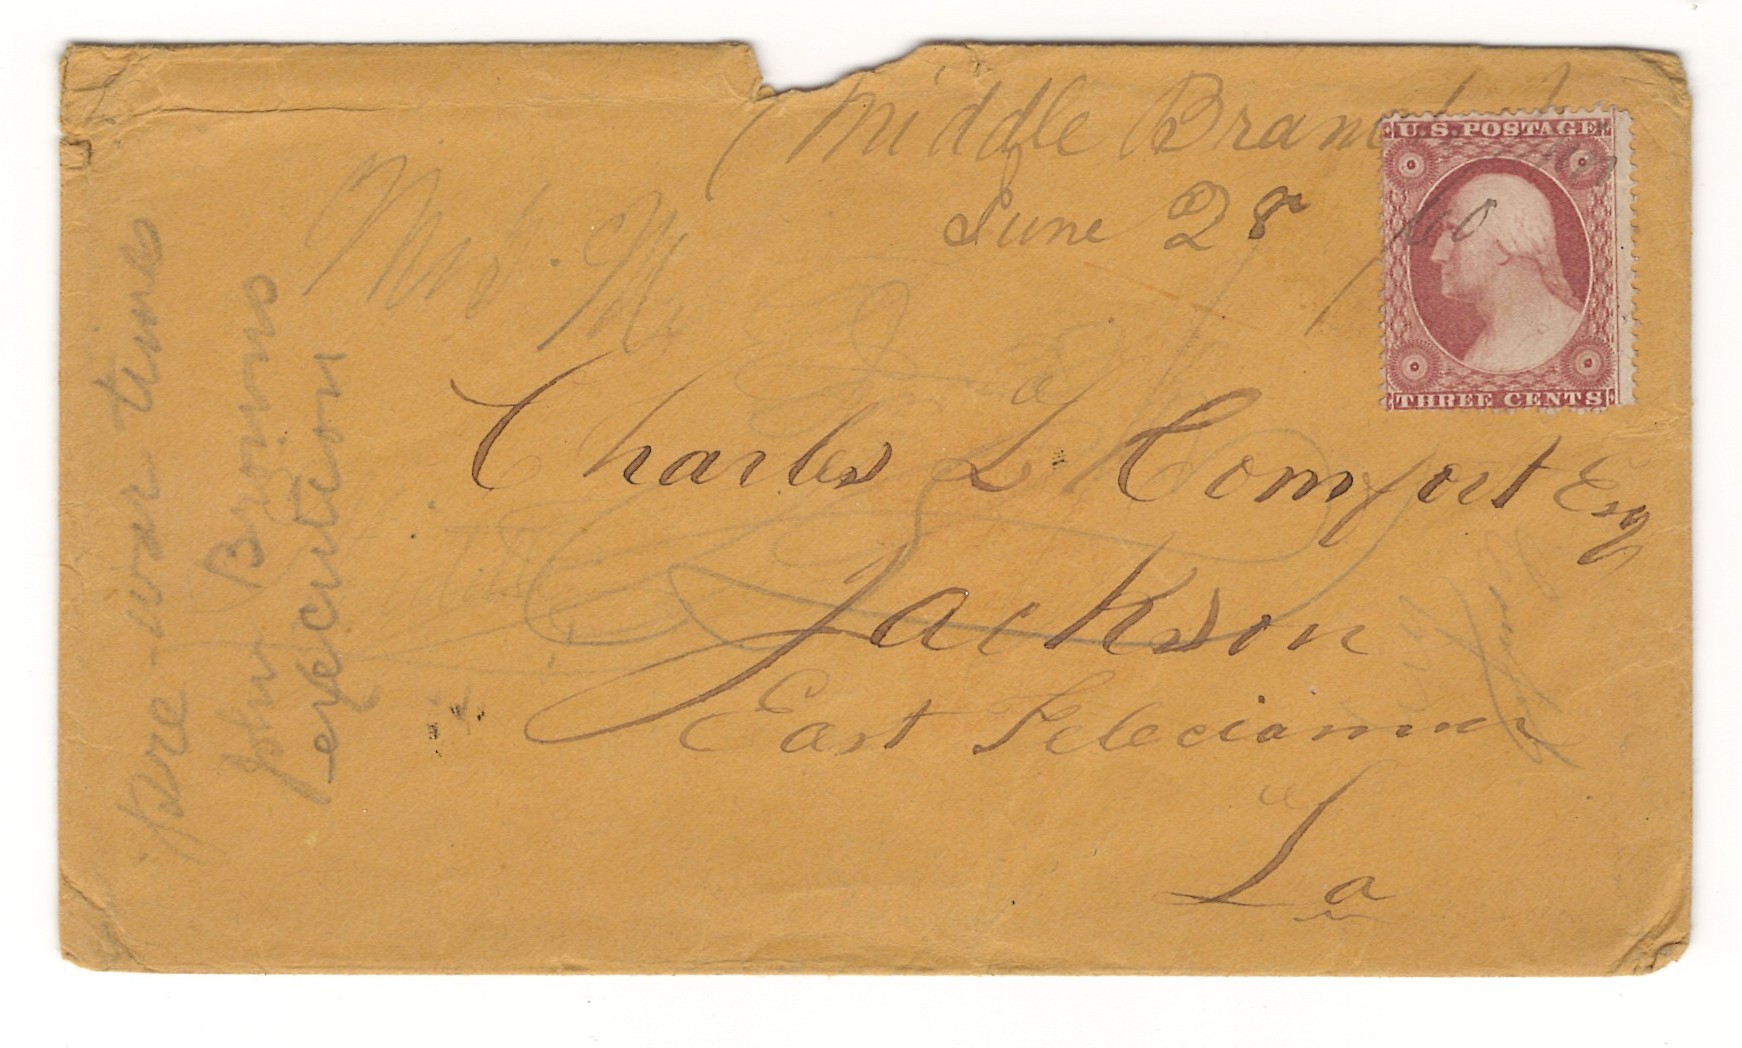 Middle Branch
June 28 /60
U.S. POSTAGE
THREE CENTS
Mrs. M
Charles L Comfort Esq
Jackson
East Felecianna
La
pre-war times
John Browns
execution